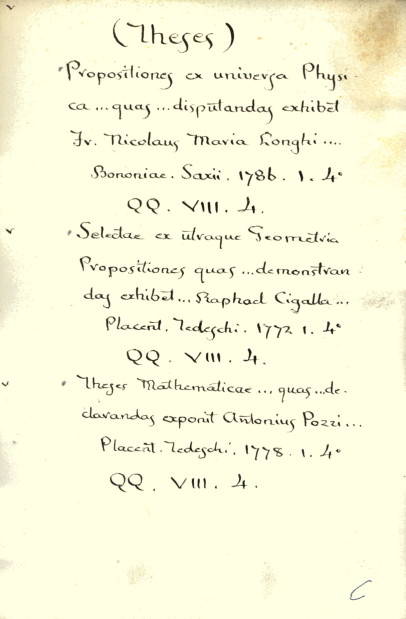 (Theses)
Propositiones ex universa Physi-
ca ... quas ... disputandas exhibet
Fr. Nicolaus Maria Longhi ....
Bononiae. Saxii. 1786. 1. 4°
QQ. VIII. 4.
Selectae ex utraque Geometria
Propositiones quas ... demonstran
das exhibet ... Raphael Cigalla ...
Placent. Tedeschi. 1772 1. 4°
QQ. VIII. 4.
Theses Mathematicae ... quas ... de-
clarandas exponit Antonius Pozzi ...
Placent. Tedeschi. 1778. 1. 4°
QQ. VIII. 4.
C